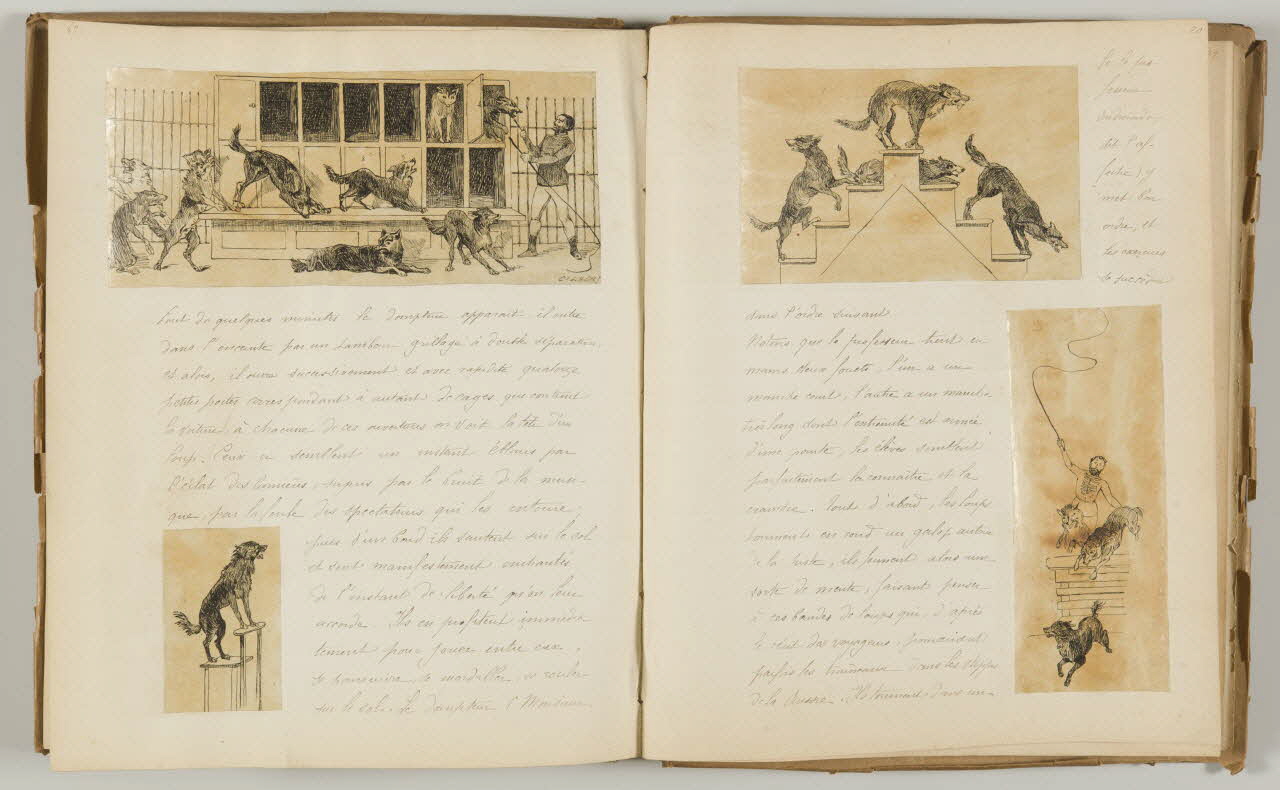 Bout de quelques minutes le dompteur apparait il entre
dans l'enceinte par un tambour grillagé à double séparation,
et alors, il ouvre successivement et avec rapidité quatorze
petites portes correspondant à autant de cages que contient
la voiture, à chacune de ces ouvertures on voit la tête d'un
loup. Ceux ci semblent un instant éblouis par
l'éclat des lumières, surpris par le bruit de la musi-
que, par la foule des spectateurs qui les entoure;
puis d'un bond ils sautent sur le sol
et sont manifestement enchantés
de l'instant de liberté qu'on leur
accorde. Ils en profitent immédia
tement pour jouer entre eux,
se poursuivre, se mordiller, se rouler
sur le sol. Le dompteur (Monsieur
20
met l'or
ordre, et
les exercices
se succèdent
dans l'ordre suivant
Notons que le professeur tient en
mains deux fouets, l'un a un
manche court, l'autre a un manche
très long dont l'extrémité est armée
d'une pointe, les élèves semblent
parfaitement la connaître et la
craindre. Tout d'abord, les loups
tournent en rond au galop autour
de la piste, ils forment alors une
sorte de meute, faisant penser
à ces bandes de loups qui, d'après
le récit des voyageurs, poursuivent
parfois les traineaux dans les steppes
de la Russie. Ils tournent dans un